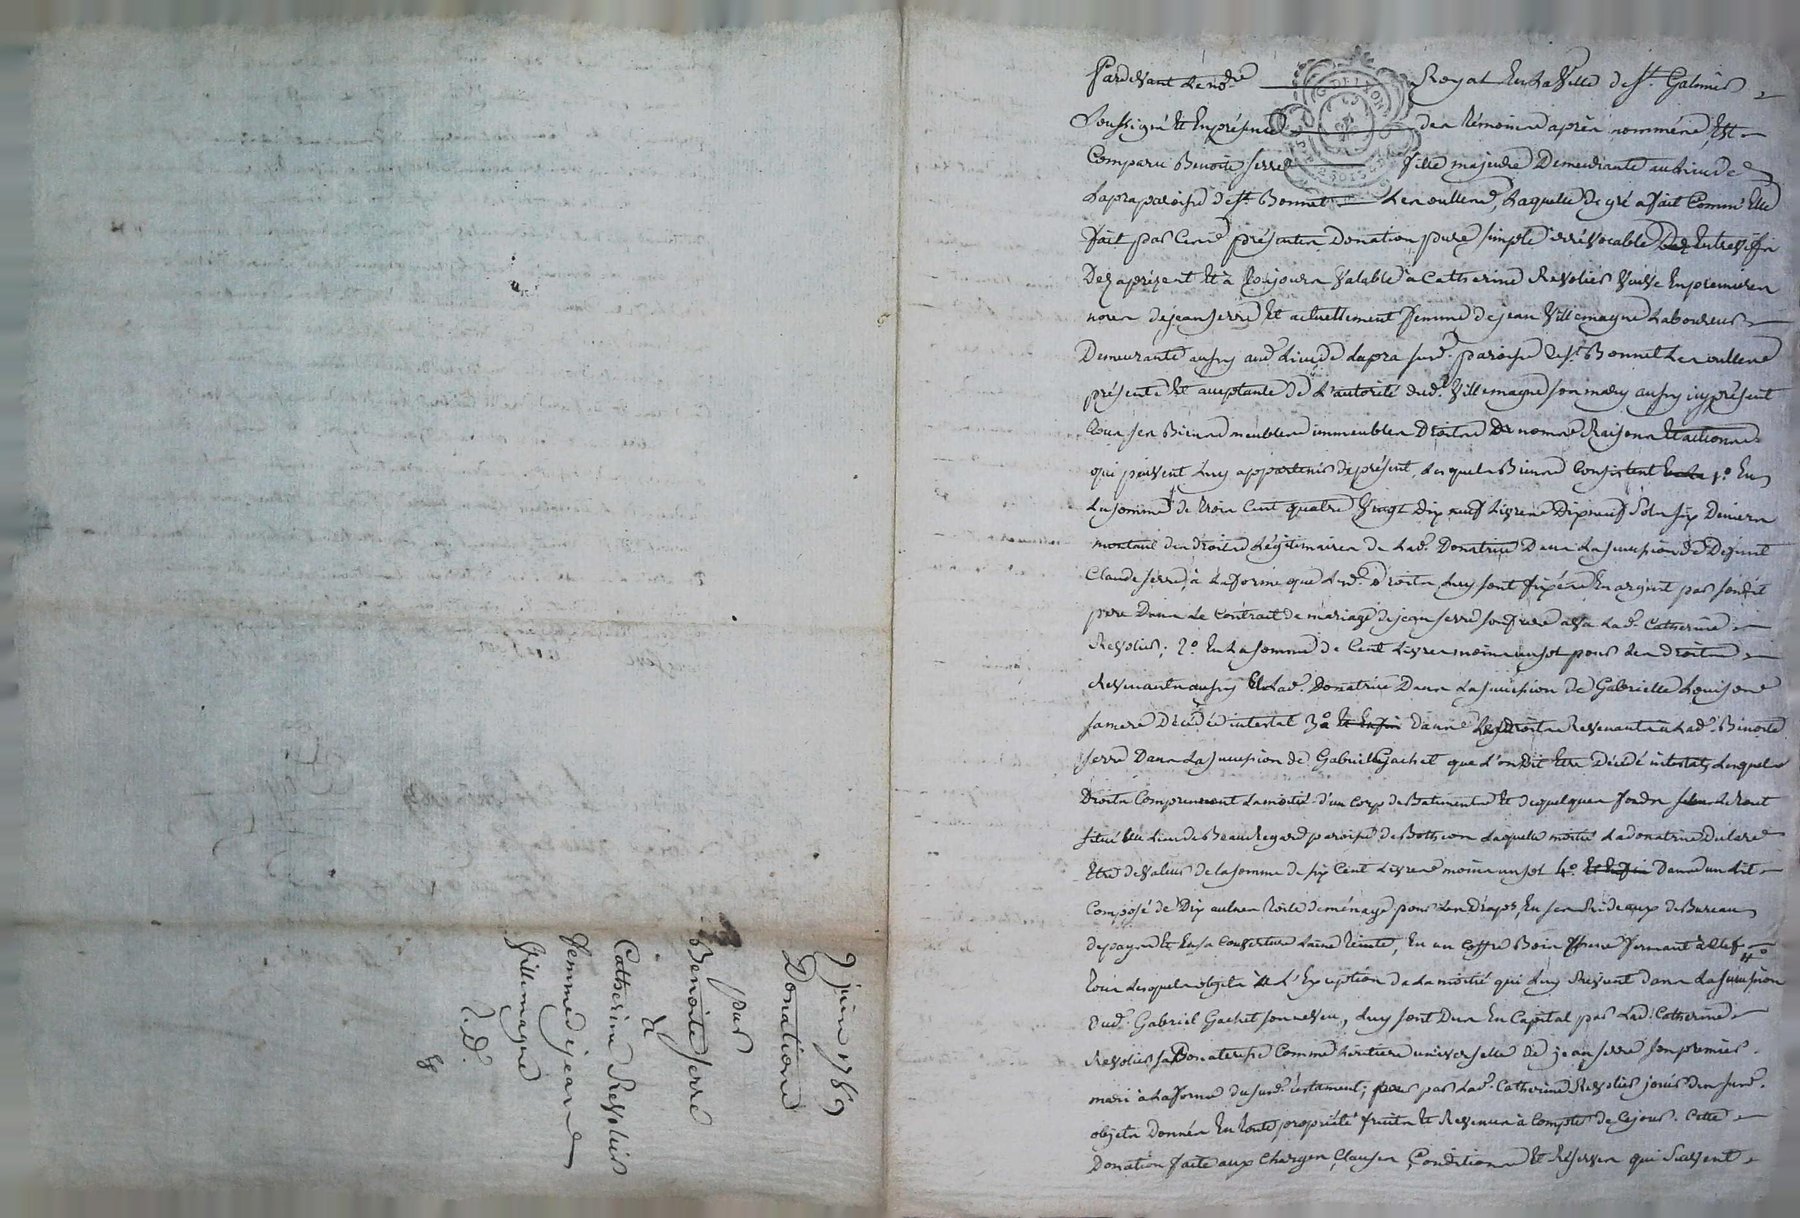 Pardevant le nore Royal en la ville de St. Galmier
Soussigné et en présence des témoins après nommés, est
Comparu Benoite Serre fille majeure demeurante au lieu de
Lapra paroisse de St. Bonnet Les oulles, Laquelle de gré a fait comm'elle
fait par Ces présentes Donation pure simple irrévocable Ditte Entrevifs
Dez aprézent et à toujours valable à Catherine Revolier veuve En premieres
noces de jean Serre et actuellement femme de jean Villemagne Laboureur
Demeurante aussy aud. Lieu de Lapra susd. paroisse de St. Bonnet Les oulles
présente et acceptante de L'autorité dud. Villemagne son mary aussy icy présent
tous ses Biens meubles immeubles Droits noms Raisons et actions
qui peuvent Luy appartenir de présent, Lesquels Biens Consistent 1o. En
La somme de trois Cent quatre vingt Dix neuf Livres Dix neuf sols six Deniers
montant des droits Légitimaires de Lad. Donatrice Dans La succession de Defunt
Claude Serre, à La forme que Lesd. Droits Luy sont fixés En argent par sondit
pere Dans Le Contrait de mariage de jean Serre son frere avec Lad. Catherine
Revolier; 2o. En La somme de Cent Livres moins un sol pour Les droits
Revenants aussy à Lad. Donatrice Dans La succession de Gabrielle Louison
sa mere Décédée intestat 3o. et Enfin dans Les Droits Revenants à Lad. Benoite
Serre Dans La succession de Gabriel Gachet que L'on dit Etre Décédé intestat, Lesquels
Droits Comprennent La moitié d'un Corps de Batiments et de quelques fonds Le tout
situé au Lieu de Beauregard paroisse de Bothéon Laquelle moitié La donatrice Déclare
Etre de valeur de la somme de six Cent Livres moins un sol 4o. et Enfin Dans un Lit
Composé de Dix aulnes toile de ménage pour Les Draps, En ses Rideaux de Bureau
de payis et En sa Couverture Laine teinte, En un Coffre Bois fermant à Clef
tous Lesquels objets à L'Exception de La moitié qui Luy Revient dans La succession
Dud. Gabriel Gachet son neveu, Luy sont Dus En Capital par Lad. Catherine
Revolier sa Donataire Comme héritiere universelle de jean Serre son premier
mari à La forme de sond. testament; pour par Lad. Catherine Revolier jouir des susd.
objets Donnés En toute propriété fruits et Revenus à Compter de Ce jour. Cette
Donation faite aux Charges, Clauses, Conditions et Réserves qui suivent
juin 1769
Donation
par
Benoite Serre
à
Catherine Revolier
femme de jean
Villemagne